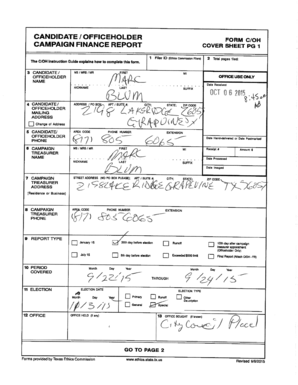 CANDIDATE / OFFICEHOLDER FORM C/OH
CAMPAIGN FINANCE REPORT COVER SHEET PG 1
The C/OH Instruction Guide explains how to complete this form.
1 Filer ID (Ethics Commission Filers)
2 Total pages filed:
3 CANDIDATE / OFFICEHOLDER NAME
MS / MRS / MR FIRST MI
MARC
NICKNAME LAST SUFFIX
BLUM
OFFICE USE ONLY
Date Received
OCT 06 2015
8:45am
4 CANDIDATE / OFFICEHOLDER MAILING ADDRESS
Change of Address
ADDRESS / PO BOX; APT / SUITE #; CITY; STATE; ZIP CODE
GRAPEVINE TX
5 CANDIDATE/ OFFICEHOLDER PHONE
AREA CODE PHONE NUMBER EXTENSION
(817) 805 6065
Date Hand-delivered or Date Postmarked
6 CAMPAIGN TREASURER NAME
MS / MRS / MR FIRST MI
MARC
NICKNAME LAST SUFFIX
BLUM
Receipt # Amount $
Date Processed
Date Imaged
7 CAMPAIGN TREASURER ADDRESS
(Residence or Business)
STREET ADDRESS (NO PO BOX PLEASE); APT / SUITE #; CITY; STATE; ZIP CODE
GRAPEVINE TX
8 CAMPAIGN TREASURER PHONE
AREA CODE PHONE NUMBER EXTENSION
(817) 805 6065
9 REPORT TYPE
January 15
30th day before election
Runoff
15th day after campaign treasurer appointment (Officeholder Only)
July 15
8th day before election
Exceeded $500 limit
Final Report (Attach C/OH - FR)
10 PERIOD COVERED
Month Day Year
9/22/15
THROUGH
Month Day Year
9/24/15
11 ELECTION
ELECTION DATE
Month Day Year
11/3/15
ELECTION TYPE
Primary
Runoff
Other Description
General
Special
12 OFFICE
OFFICE HELD (if any)
13 OFFICE SOUGHT (if known)
City Council Place 1
GO TO PAGE 2
Forms provided by Texas Ethics Commission www.ethics.state.tx.us